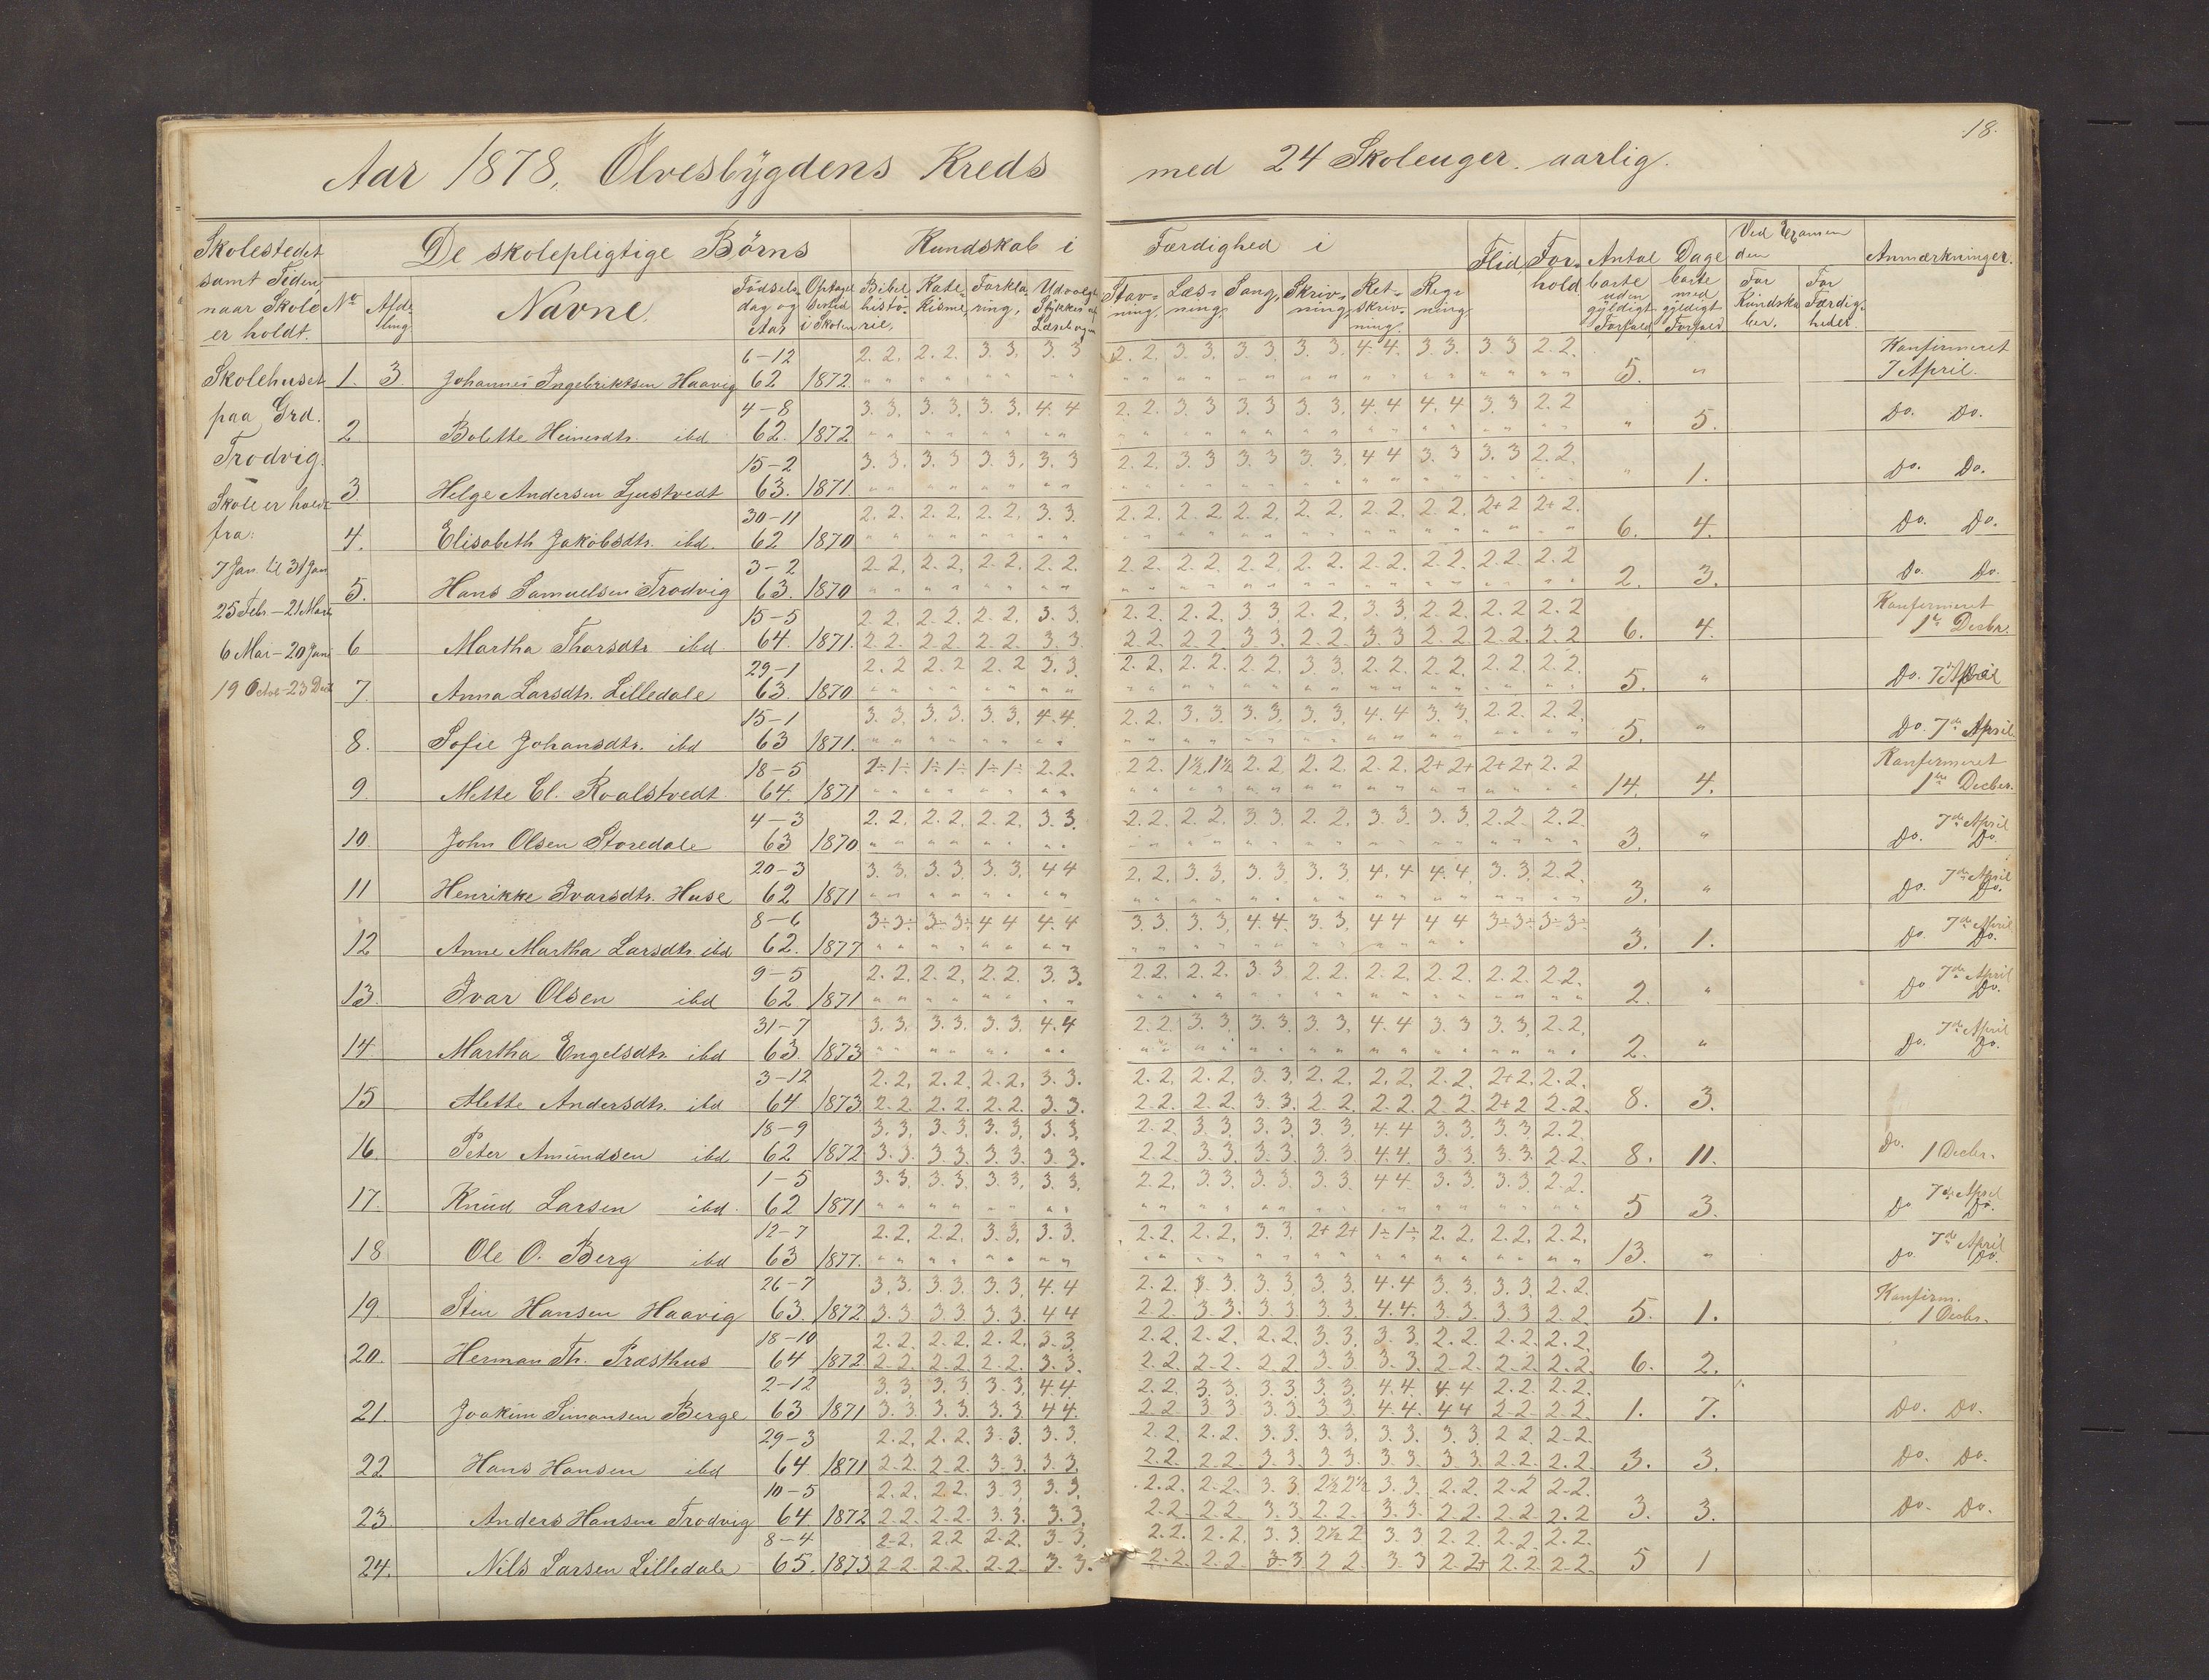 18.
Aar 1878, Ølvesbygdens Kreds med 24 Skoleuger aarlig.
Skolestedet samt Tiden naar Skole er holdt.
De skolepligtige Børns
Kundskab i
Færdighed i
Flid
Forhold
Antal Dage
Ved Examen
Anmærkninger.
No
Afdeling
Navne
Fødselsdag og Aar
Optagelsestid i Skolen
Bibelhistorie,
Katekisme,
Forklaring,
Udvalgte Stykker af Læsebogen
Stavning,
Læsning,
Sang,
Skrivning,
Retskrivning,
Regning
borte uden gyldigt Forfald
borte med gyldigt Forfald
For Kundskaber.
For Færdigheder.
Skolehuset
paa Grd.
Trodvig.
Skole er holdt
fra:
7 Jan. til 31 Jan
25 Febr. - 21 Marts
6 Mai - 20 Juni
19 Octob - 23 Decb
1. 3. Johannes Ingebriktsen Haavig 6-12 62 1872 2.2. 2.2. 3.3. 3.3 2.2. 3.3. 3.3. 3.3. 4.4. 3.3. 3.3 2.2. 5. " Konfirmeret 7 April.
2 Bolette Heinesdtr. ibd 4-8 62. 1872 3.3. 3.3. 3.3. 4.4 2.2. 3.3 3.3 3.3. 4.4 4.4 3.3 2.2 " 5. Do. Do.
3 Helge Andersen Ljustvedt 15-2 63. 1871. 3.3. 3.3 3.3. 3.3 2.2. 3.3 3.3 3.3. 4 4 3.3 3.3 2.2. " 1. Do. Do.
4. Elisabeth Jakobsdtr. ibd. 30-11 62 1870 2.2. 2.2. 2.2. 3.3. 2.2. 2.2. 2.2. 2.2. 2.2. 2.2. 2+ 2 2+ 2. 6. 4. Do. Do.
5. Hans Samuelsen Trodvig 3-2 63. 1870 2.2. 2.2. 2.2. 2.2. 2.2. 2.2. 2.2. 2.2. 2.2. 2.2. 2.2. 2.2 2. 3. Do. Do.
6 Martha Thorsdtr ibd 15-5 64. 1871. 2.2. 2.2. 2.2. 3.3. 2.2. 2.2. 3.3. 2.2. 3.3. 2.2. 2.2 2.2 6. 4. Konfirmeret 1te Decbr.
2.2. 2.2. 2.2. 3.3. 2.2. 2.2 3.3 2.2 3.3 2.2 2.2. 2.2
7. Anna Larsdtr. Lilledale 29-1 63. 1870 2.2 2.2 2.2 3.3. 2.2. 2.2. 2.2. 3.3 2.2. 2.2. 2.2. 2.2. 5. " Do. 7de April
8. Sofie Johansdtr. ibd 15-1 63 1871. 3.3. 3.3. 3.3. 4.4. 2.2. 3.3. 3.3. 3.3. 4.4 3.3. 2.2. 2.2. 5. " Do. 7de April.
9. Mette El. Roalstvedt 18-5 64. 1871 1÷1÷ 1÷1÷ 1÷1÷ 2.2. 2 2. 1½.1½ 2.2. 2.2. 2.2. 2+ 2+ 2+ 2+ 2.2 14. 4. Konfirmeret 1te Decber.
10. John Olsen Storedale 4-3 63 1870 2.2. 2.2. 2.2. 3.3. 2.2. 2.2. 3.3. 2.2. 3.3. 3.3. 2.2. 2.2. 3. " 7de April Do. Do.
11 Henrikke Ivarsdtr. Huse 20-3 62 1871 3.3. 3.3. 3.3. 4 4 2.2. 3.3. 3.3. 3.3. 4.4 4.4. 3.3. 2.2. 3. " 7de April Do. Do.
12 Anne Martha Larsdtr. ibd 8-6 62. 1877 3÷3÷ 3÷3÷ 4 4 4.4 3.3. 3.3. 4.4. 3.3. 4 4 4 4 3÷3÷ 3÷3÷ 3. 1. 7de April Do. Do.
13. Ivar Olsen ibd 9-5 62 1871 2.2. 2.2. 2.2. 3.3. 2.2. 2.2. 3.3. 2.2. 2.2. 2.2. 2.2. 2.2. 2. " 7de April Do Do.
14. Martha Engelsdtr. ibd 31-7 63. 1873 3.3. 3.3. 3.3. 4.4 2.2. 3.3. 3.3. 3.3. 4.4 3.3 3.3. 2.2. 2. " 7de April Do. Do.
15 Mette Andersdtr. ibd 3-12 64 1873 2.2. 2.2. 2.2. 3.3. 2.2. 2.2. 3.3. 2.2. 2.2. 2.2. 2+2. 2.2. 8. 3.
2.2. 2.2. 2.2. 3.3. 2.2. 2.2. 3.3. 2.2. 2.2. 2.2. 2+2 2.2.
16. Peter Amundsen ibd 18-9 62 1872 3.3. 3.3. 3.3. 3.3. 2.2 3.3. 3.3. 3.3. 4.4 3.3. 3.3 2.2. 8. 11. Do. 1 Decbr.
3.3. 3.3. 3.3. 3.3. 2.2 3.3. 3.3. 3.3. 4.4. 3.3. 3.3. 2.2.
17. Knud Larsen ibd. 1-5 62 1871 3.3. 3.3. 3.3. 3.3. 2.2. 3.3. 3.3. 3.3. 4 4. 3.3. 3.3 2.2. 5 3. 7de April Do Do.
18 Ole O. Berg ibd 12-7 63 1877. 2.2. 2.2. 3.3. 3.3. 2.2. 2.2. 3.3 2+ 2+ 1÷1÷ 2.2. 2.2. 2.2. 13. " 7de April Do. Do.
19. Sten Hansen Haavig 26-7 63. 1872 3.3. 3.3. 3.3. 4.4 2.2. 3.3. 3.3. 3.3 4.4 3.3. 3.3. 2.2. 5. 1. Konfirm. 1 Decbr.
3.3. 3.3. 3.3. 4 4 2 2. 3.3. 3.3. 3.3. 4.4. 3.3. 3.3 2.2
20. Herman Th. Præsthus 18-10 64 1872 2.2. 2.2. 2.2. 3.3 2.2. 2.2. 2.2 3.3. 3.3. 2.2. 2.2 2.2. 6. 2.
2.2. 2.2. 2.2. 3.3. 2.2. 2.2. 2.2 3.3 3.3. 2.2. 2.2. 2.2.
21. Joakim Simonsen Berge 2-12 63 1871 3.3. 3.3. 3.3. 4.4. 2.2. 3.3. 3.3. 3.3. 4.4. 4.4 2.2. 2.2. 1. 7. Do. Do.
3.3. 3.3. 3.3. 4 4. 2.2 3.3 3.3. 3.3 4.4. 4 4 2.2 2.2.
22 Hans Hansen ibd 29-3 64. 1871 2.2. 2.2. 3.3. 3.3. 2.2. 2.2. 3.3. 3.3. 3.3. 3.3. 2 2. 2.2. 3. 3. Do. Do.
2.2. 2.2. 3.3. 3.3. 2.2. 2.2 3.3. 3.3. 3.3. 3.3 2.2. 2.2
23. Anders Hansen Trodvig 10-5 64 1872 2.2. 2.2. 3.3. 3.3. 2.2. 2.2. 3.3 2½2½ 3.3. 2.2. 2.2 2.2. 3. 3. Do. Do.
2.2. 2.2. 3.3. 3.3. 2.2. 2.2. 3.3 2.2. 3.3. 2.2. 2.2. 2.2
24. Nils Larsen Lilledale 8-4 65. 1873 2.2. 2.2 2.2. 3.3. 2.2. 2.2. 3.3. 2½ 2 3.3 2.2. 2.2. 2.2. 5 1
2.2. 2.2. 2.2. 3.3. 2.2. 2.2. 3.3 2 2. 3.3 2.2+ 2.2. 2.2.